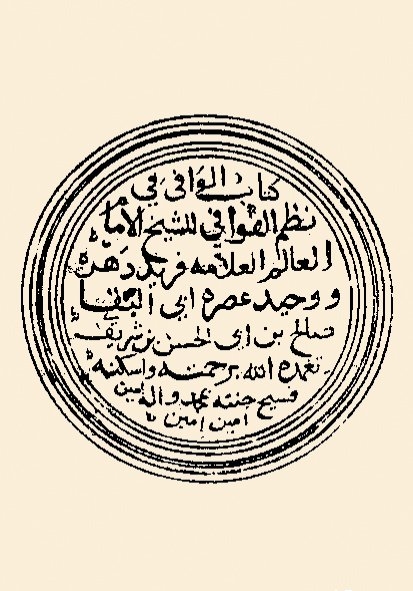 كتاب الوافي في
نظم القوافي للشيخ الامام
العالم العلامه فريد دهره
ووحيد عصره ابي البقا
صالح بن ابي الحسن بن شريف
تغمده الله برحمته واسكنه
فسيح جنته بمحمد واله
امين امين